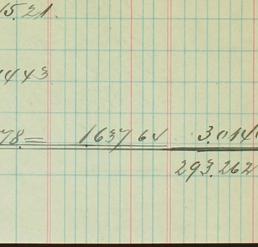 15.21.
1443
78= 163764 3.014
293.262